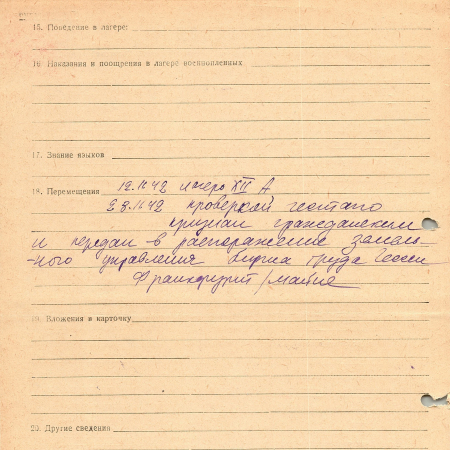 15. Поведение в лагере:
16. Наказания и поощрения в лагере военнопленных
17. Знание языков
18. Перемещения 12.11.42 лагерь XII А
23.11.42 проверкой гестапо
признан гражданским
и передан в распоряжение земель-
-ного управления биржа труда Гессен
Франкфурт/Майне
19. Вложения в карточку
20. Другие сведения